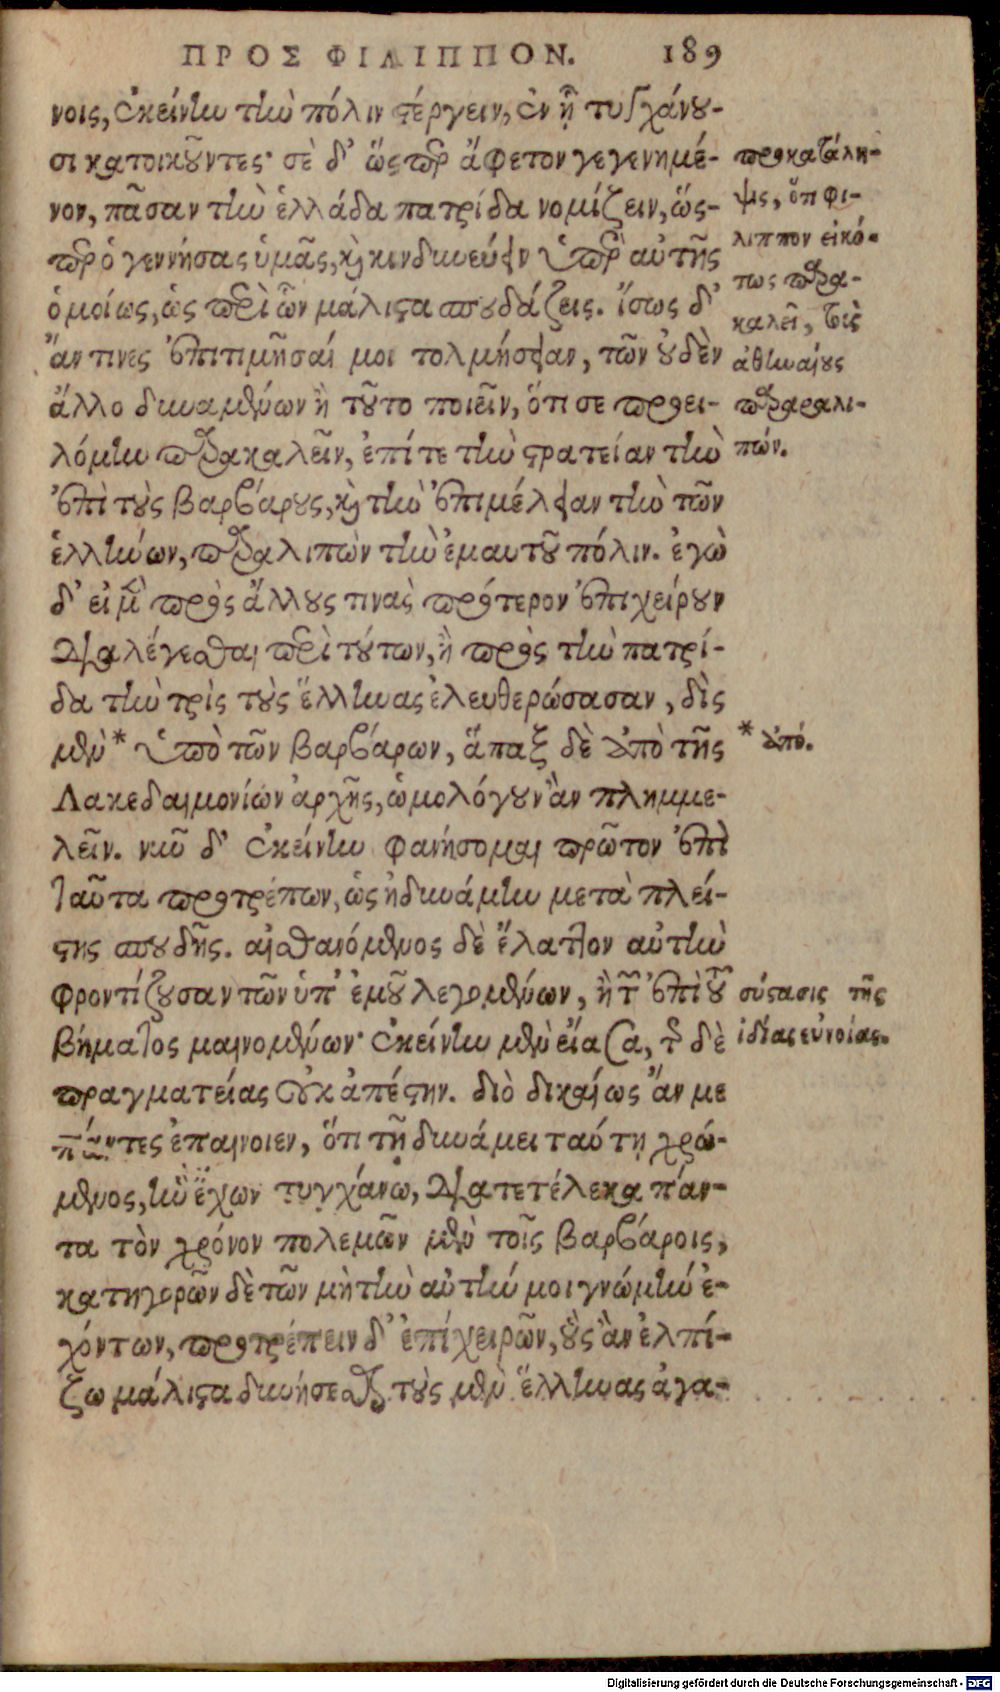 ΠΡΟΣ ΦΙΛΙΠΠΟΝ. 189
νοις, ἐκείνην τὴν πόλιν στέργειν, ἐν ᾗ τυγχάνου-
σι κατοικοῦντες· σὲ δ' ὥσπερ ἄφετον γεγενημέ-
νον, πᾶσαν τὴν ἑλλάδα πατρίδα νομίζειν, ὥς-
περ ὁ γεννήσας ὑμᾶς, καὶ κινδυνεύειν ὑπὲρ αὐτῆς
ὁμοίως, ὡς περὶ ὧν μάλιστα σπουδάζεις. ἴσως δ'
ἄν τινες ἐπιτιμῆσαί μοι τολμήσειαν, τῶν οὐδὲν
ἄλλο δυναμένων ἢ τοῦτο ποιεῖν, ὅτι σε προει-
λόμην παρακαλεῖν, ἐπί τε τὴν στρατείαν τὴν
ἐπὶ τοὺς βαρβάρους, καὶ τὴν ἐπιμέλειαν τὴν τῶν
ἑλλήνων, παραλιπὼν τὴν ἐμαυτοῦ πόλιν. ἐγὼ
δ' εἰ μὲν πρὸς ἄλλους τινὰς πρότερον ἐπιχείρουν
διαλέγεσθαι περὶ τούτων, ἢ πρὸς τὴν πατρί-
δα τὴν τρὶς τοὺς ἕλληνας ἐλευθερώσασαν, δὶς
μὲν* ὑπὸ τῶν βαρβάρων, ἅπαξ δὲ ἀπὸ τῆς
Λακεδαιμονίων ἀρχῆς, ὡμολόγουν ἂν πλημμε-
λεῖν. νῦν δ' ἐκείνην φανήσομαι πρῶτον ἐπὶ
ταῦτα προτρέπων, ὡς ἠδυνάμην μετὰ πλεί-
στης σπουδῆς. αἰσθανόμενος δὲ ἔλαττον αὐτὴν
φροντίζουσαν τῶν ὑπ' ἐμοῦ λεγομένων, ἢ τῶν ἐπὶ τοῦ
βήματος μαινομένων· ἐκείνην μὲν εἴασα, τῆς δὲ
πραγματείας οὐκ ἀπέστην. διὸ δικαίως ἄν με
πάντες ἐπαινοῖεν, ὅτι τῇ δυνάμει ταύτῃ χρώ-
μενος, ἣν ἔχων τυγχάνω, διατετέλεκα πάν-
τα τὸν χρόνον πολεμῶν μὲν τοῖς βαρβάροις,
κατηγορῶν δὲ τῶν μὴ τὴν αὐτήν μοι γνώμην ἐ-
χόντων, προτρέπειν δ' ἐπιχειρῶν, οὓς ἂν ἐλπί-
ζω μάλιστα δυνήσεσθαι τοὺς μὲν ἕλληνας ἀγα-
προκατάλη-
ψις, ὅτι φί-
λιππον εἰκό-
τως παρα-
καλεῖ, τοὺς
ἀθηναίους
παραλι-
πών.
* ἀπό.
σύστασις τῆς
ἰδίας εὐνοίας.
Digitalisierung gefördert durch die Deutsche Forschungsgemeinschaft - DFG